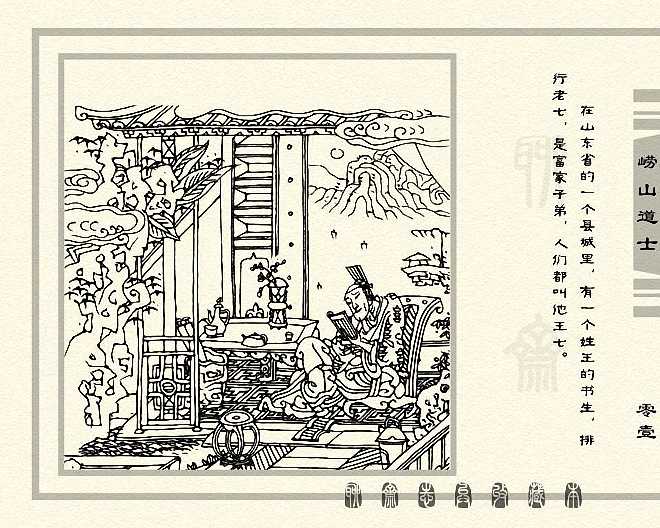 崂山道士
零壹
在山东省的一个县城里，有一个姓王的书生，排
行老七，是富家子弟，人们都叫他王七。
聊斋志异收藏本
聊
斋